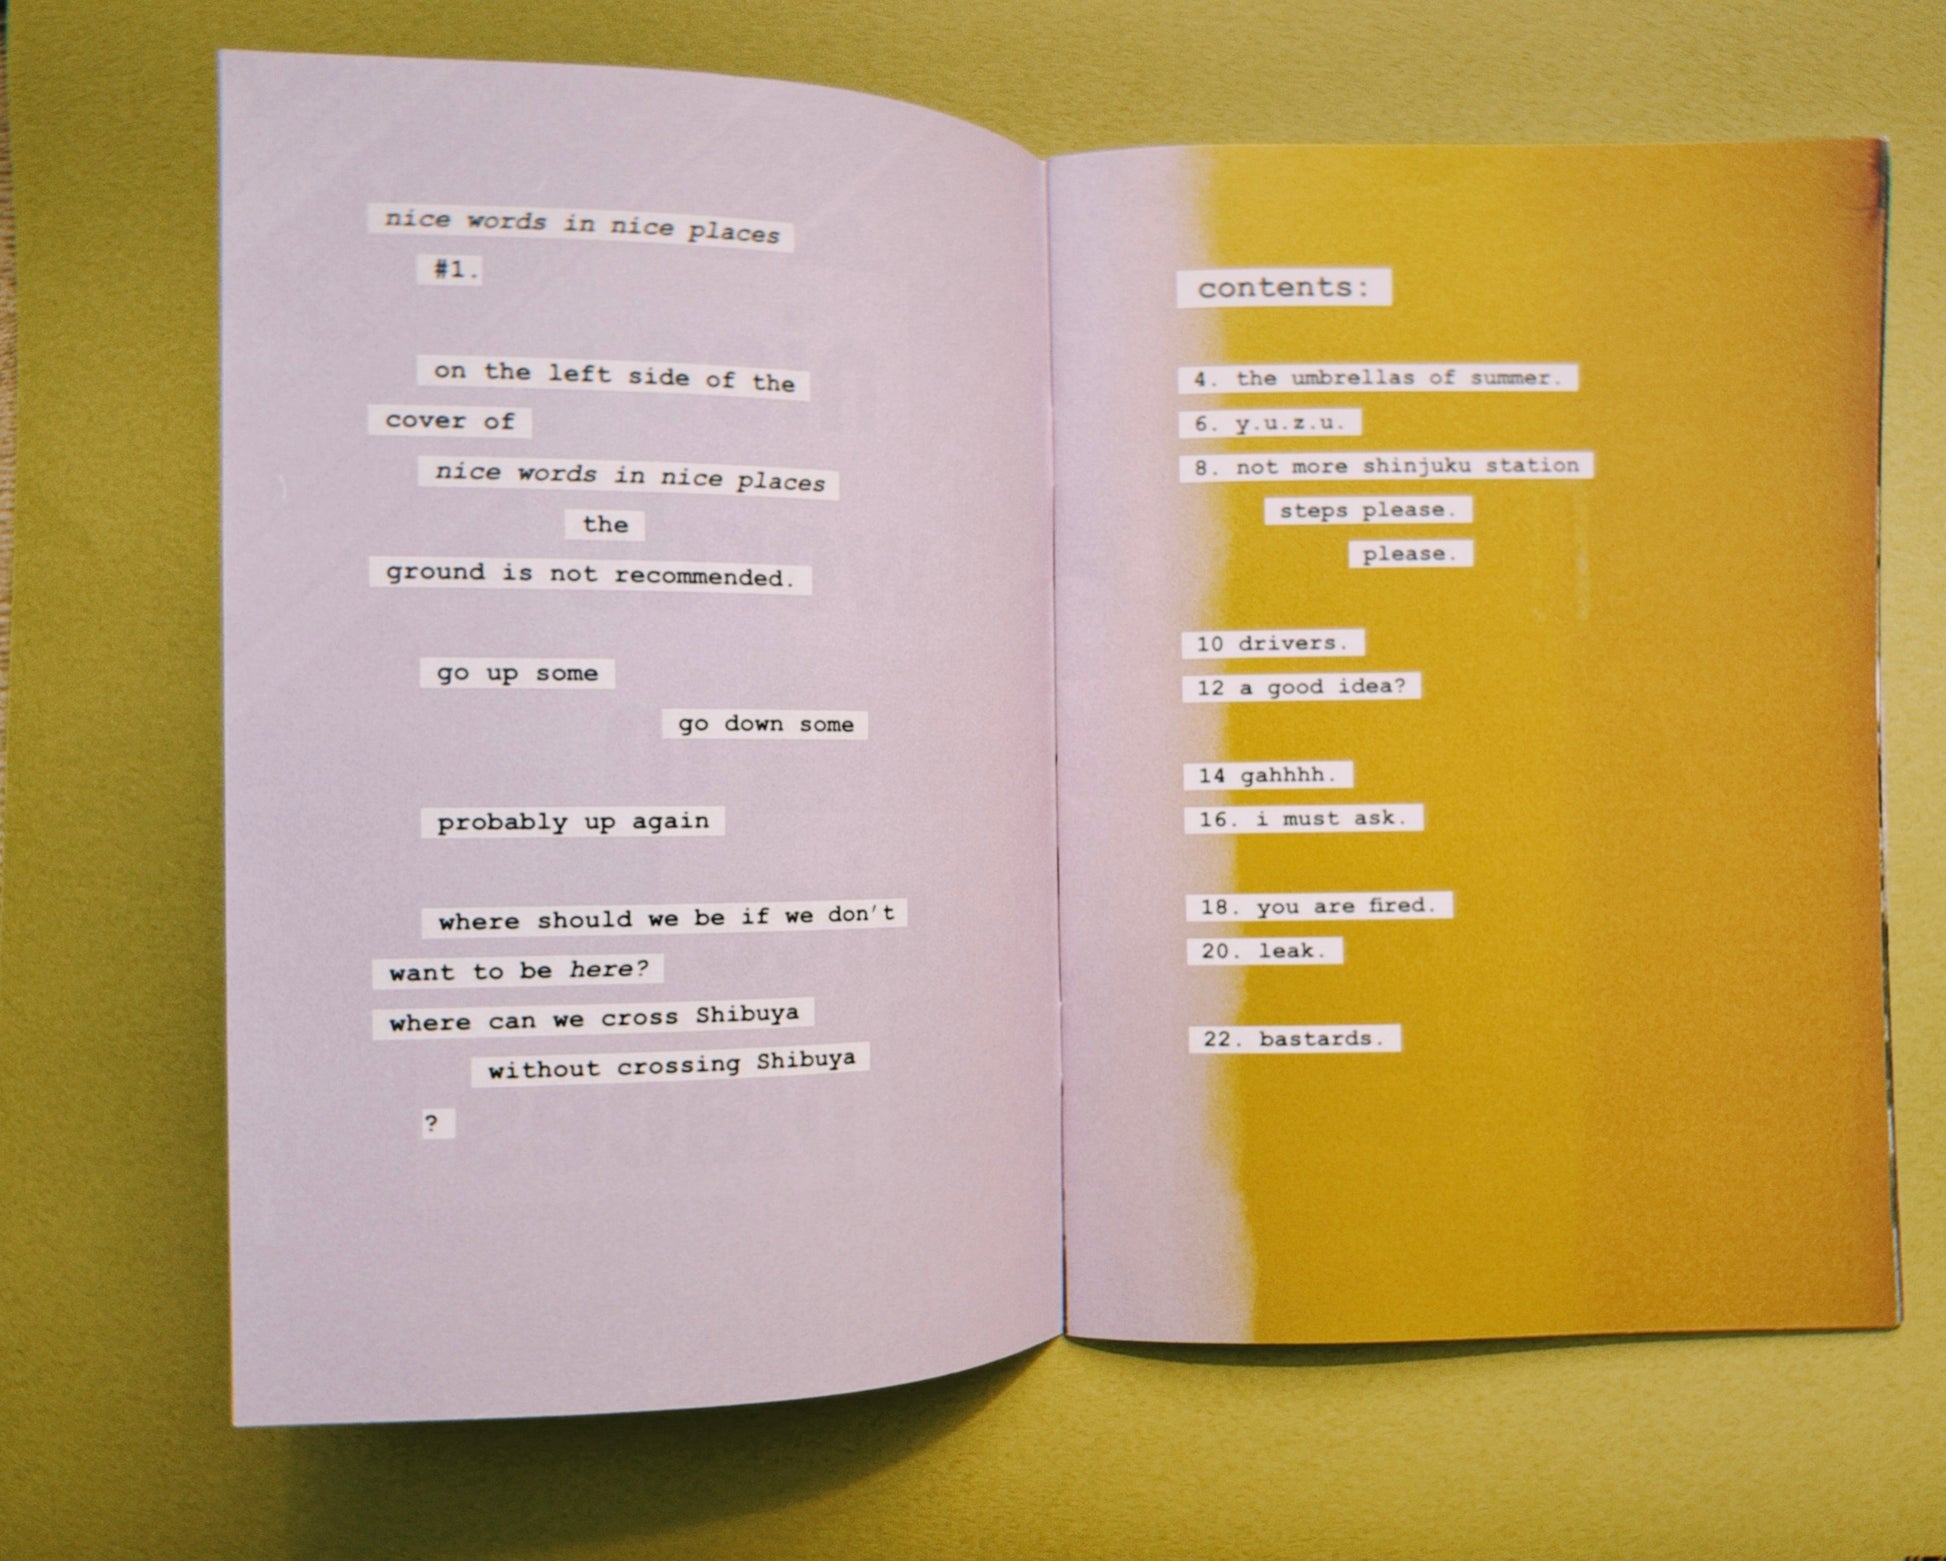 nice words in nice places
#1.
on the left side of the
cover of
nice words in nice places
the
ground is not recommended.
go up some
go down some
probably up again
where should we be if we don't
want to be here?
where can we cross Shibuya
without crossing Shibuya
?
contents:
4. the umbrellas of summer.
6. y.u.z.u.
8. not more shinjuku station
steps please.
please.
10 drivers.
12 a good idea?
14 gahhhh.
16. i must ask.
18. you are fired.
20. leak.
22. bastards.